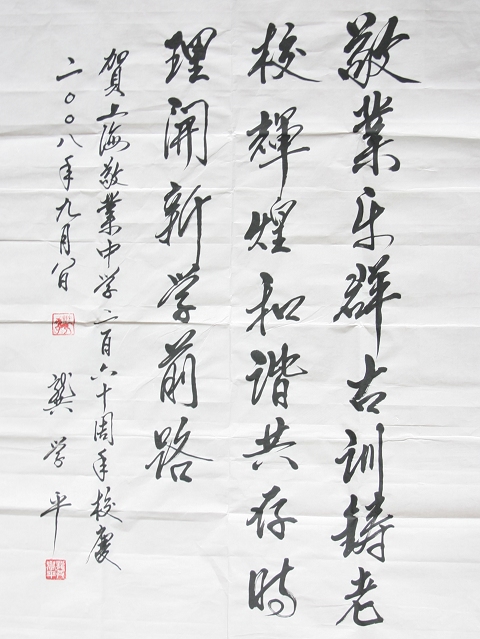 敬業乐群古训鑄老
校輝煌和谐共存時
理開新学前路
賀上海敬業中学二百六十周年校慶
二〇〇八年九月八日
龔学平